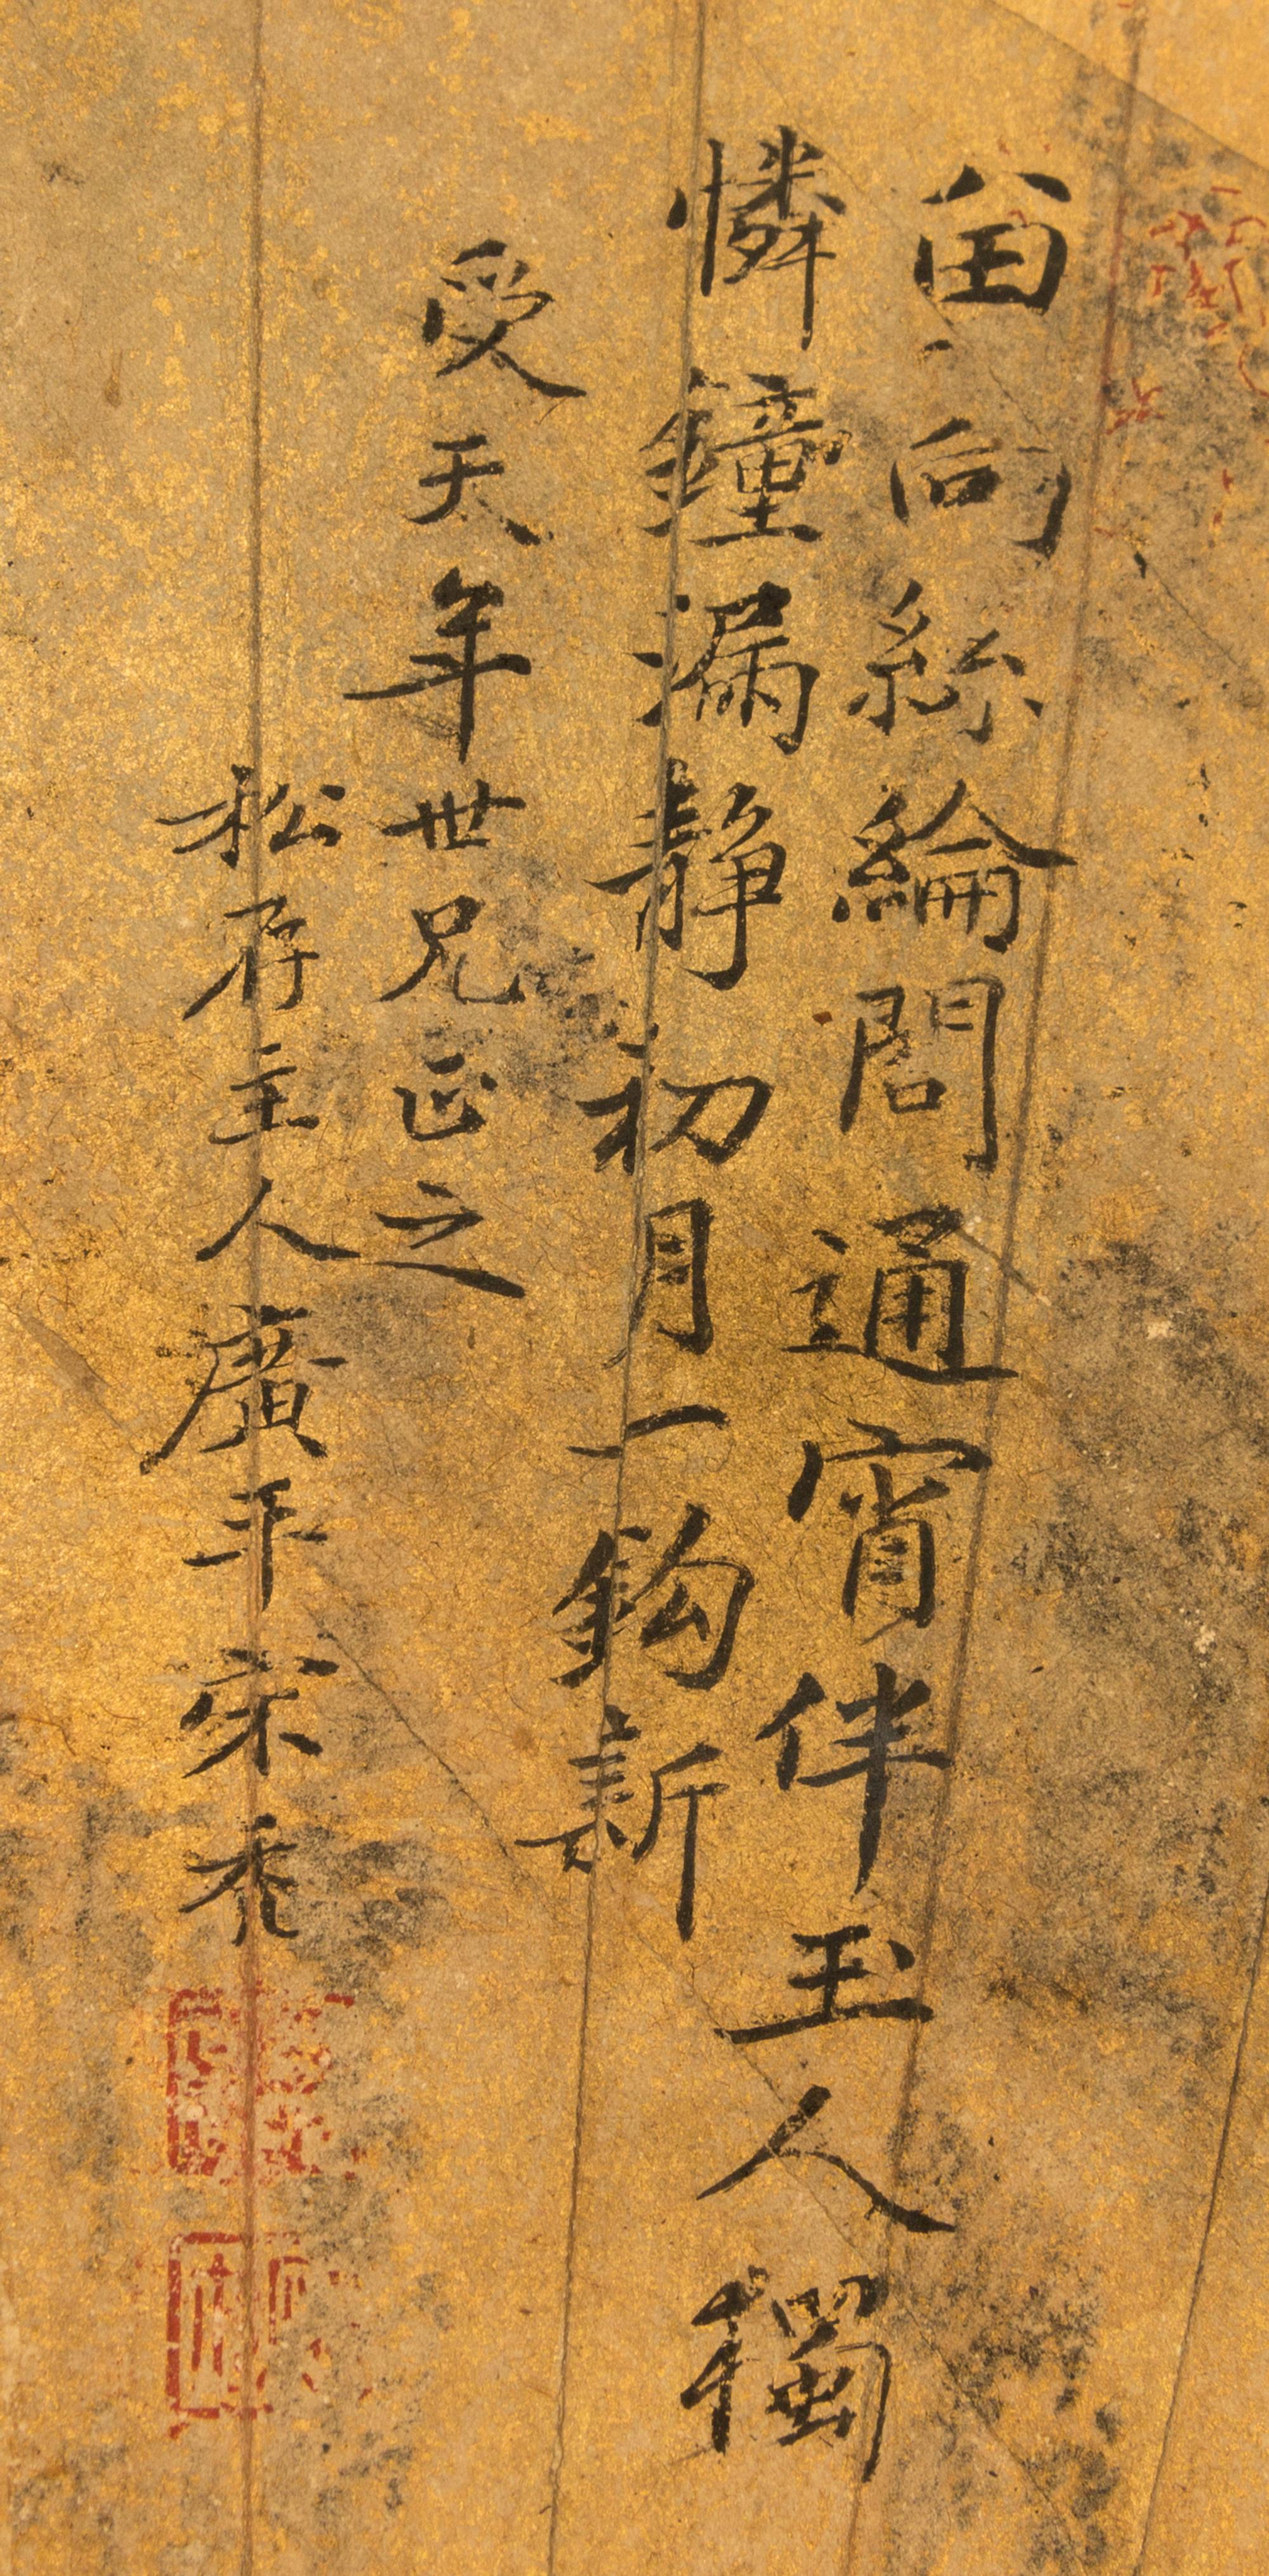 曾向絲綸閣通宵伴玉人獨
憐鐘漏靜初月一鉤新
受天年世兄正之
松存主人廣平宋